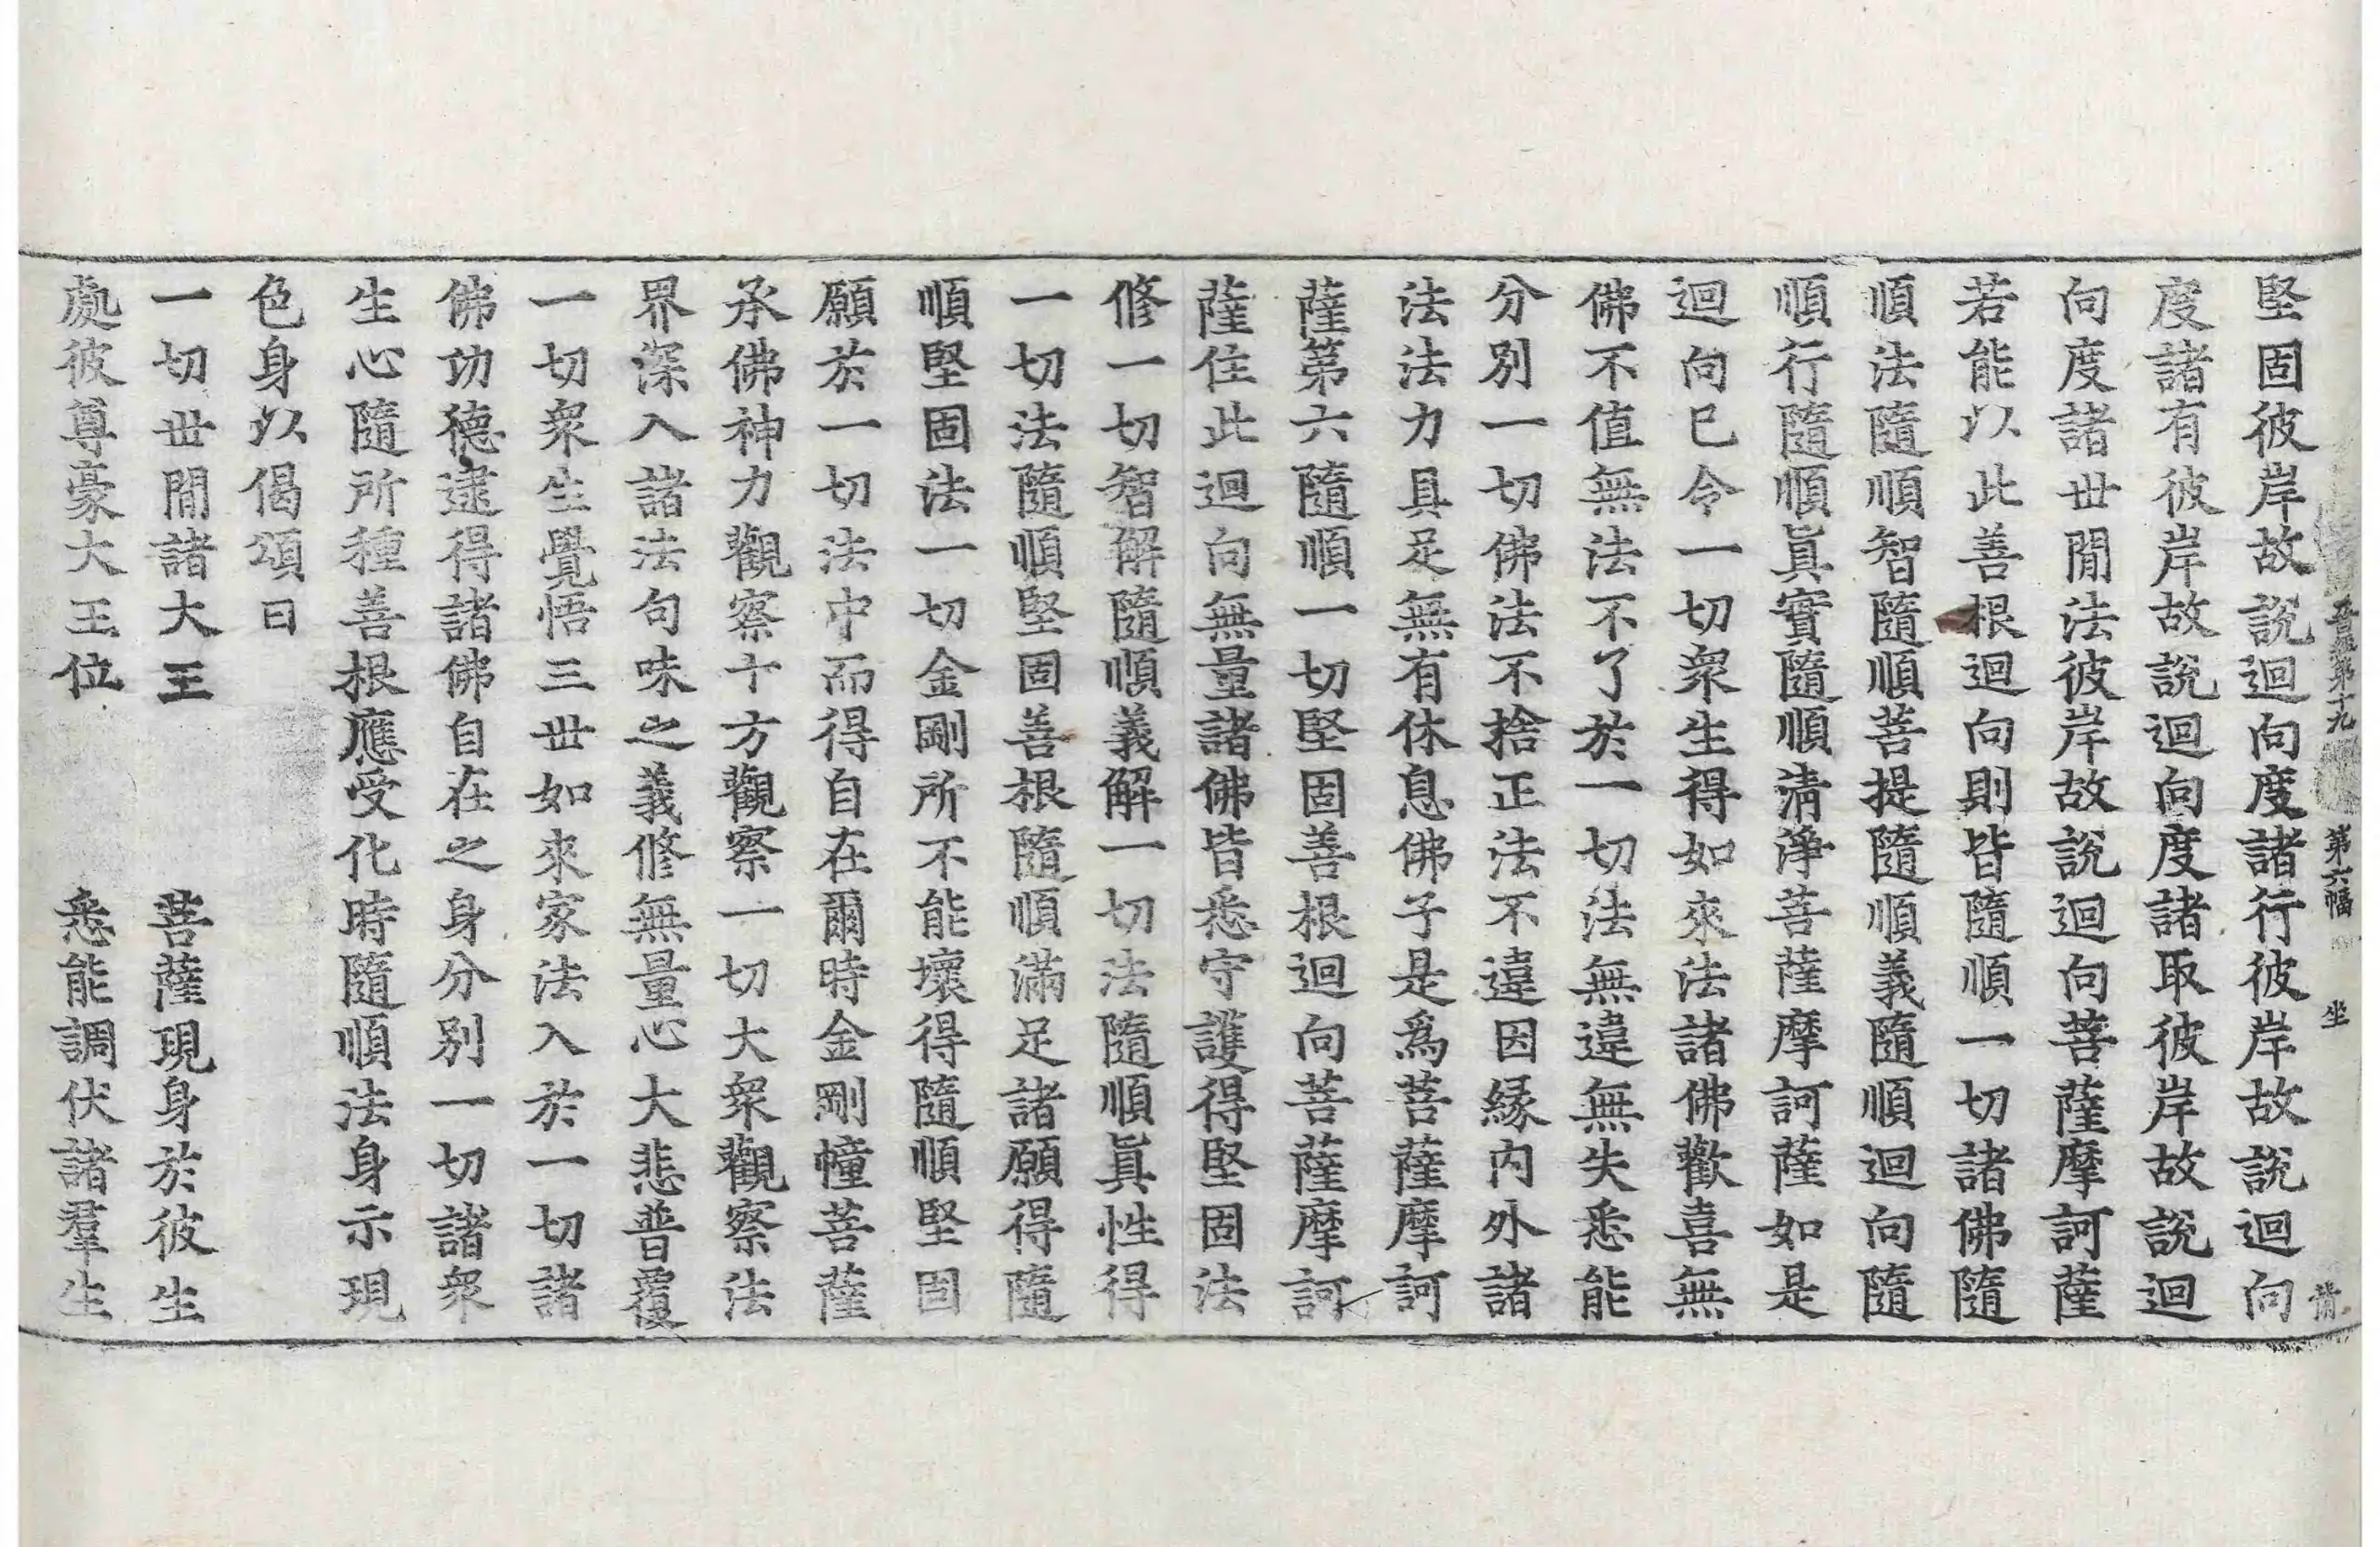 晋經第十九 第六幅 坐
堅固彼岸故說迴向度諸行彼岸故說迴向
度諸有彼岸故說迴向度諸取彼岸故說迴
向度諸世閒法彼岸故說迴向菩薩摩訶薩
若能以此善根迴向則皆隨順一切諸佛隨
順法隨順智隨順菩提隨順義隨順迴向隨
順行隨順眞實隨順淸淨菩薩摩訶薩如是
迴向已令一切衆生得如來法諸佛歡喜無
佛不值無法不了於一切法無違無失悉能
分別一切佛法不捨正法不違因緣內外諸
法法力具足無有休息佛子是爲菩薩摩訶
薩第六隨順一切堅固善根迴向菩薩摩訶
薩住此迴向無量諸佛皆悉守護得堅固法
修一切智解隨順義解一切法隨順眞性得
一切法隨順堅固善根隨順滿足諸願得隨
順堅固法一切金剛所不能壞得隨順堅固
願於一切法中而得自在爾時金剛幢菩薩
承佛神力觀察十方觀察一切大衆觀察法
界深入諸法句味之義修無量心大悲普覆
一切衆生覺悟三世如來家法入於一切諸
佛功德逮得諸佛自在之身分別一切諸衆
生心隨所種善根應受化時隨順法身示現
色身以偈頌曰
一切世閒諸大王 菩薩現身於彼生
處彼尊豪大王位 悉能調伏諸羣生